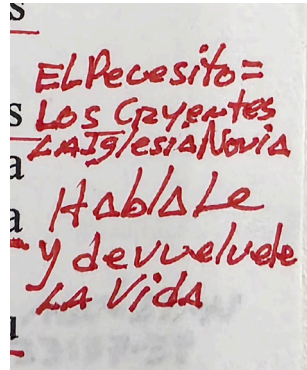 s
EL Pecesito =
s Los Cryentes
a LA Iglesia Novia
a HAblALe
y devuelvele
LA VidA